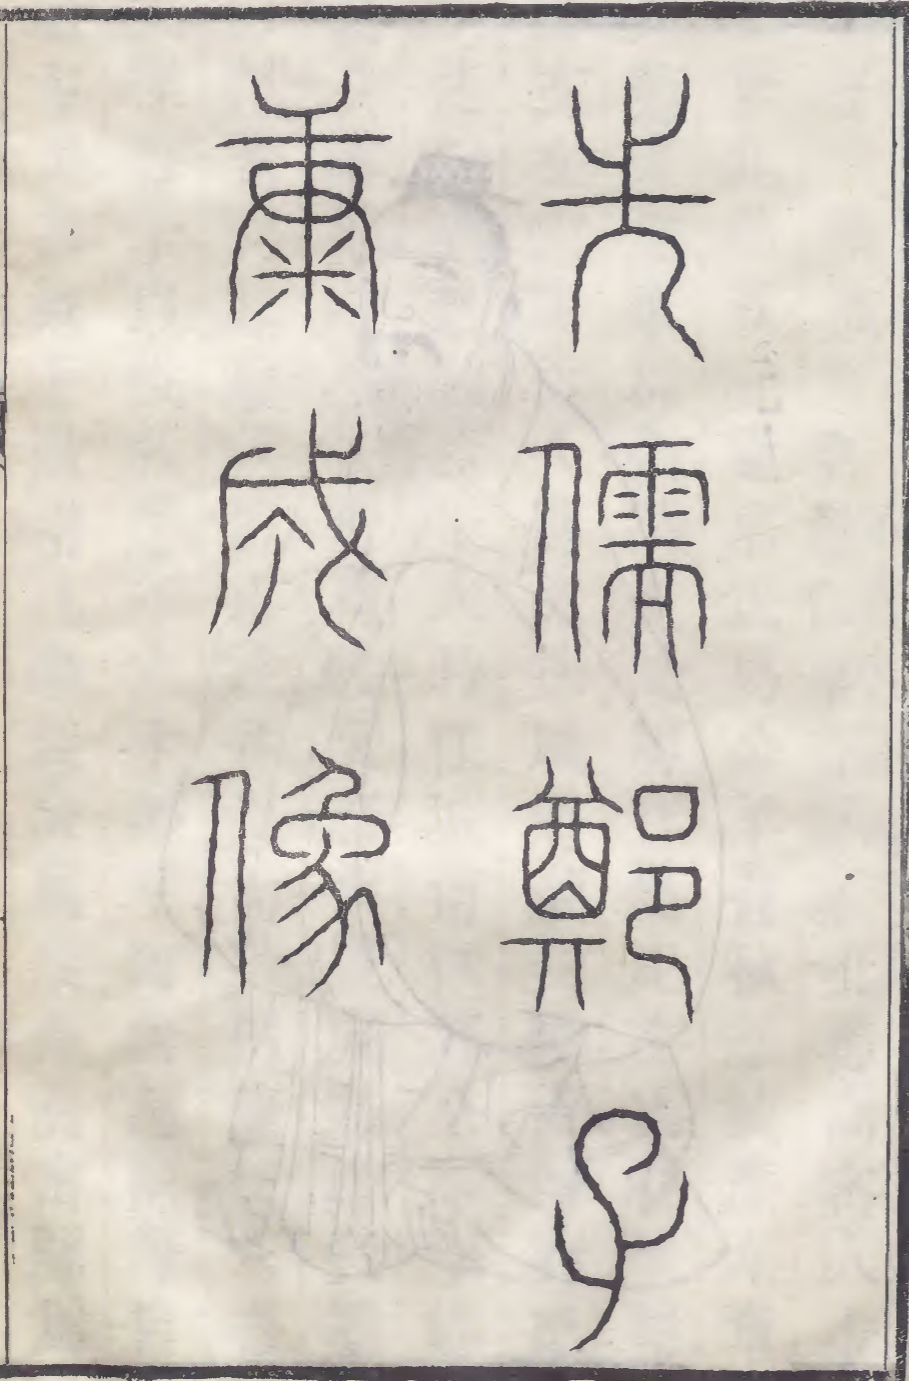 先儒鄭子
康成像